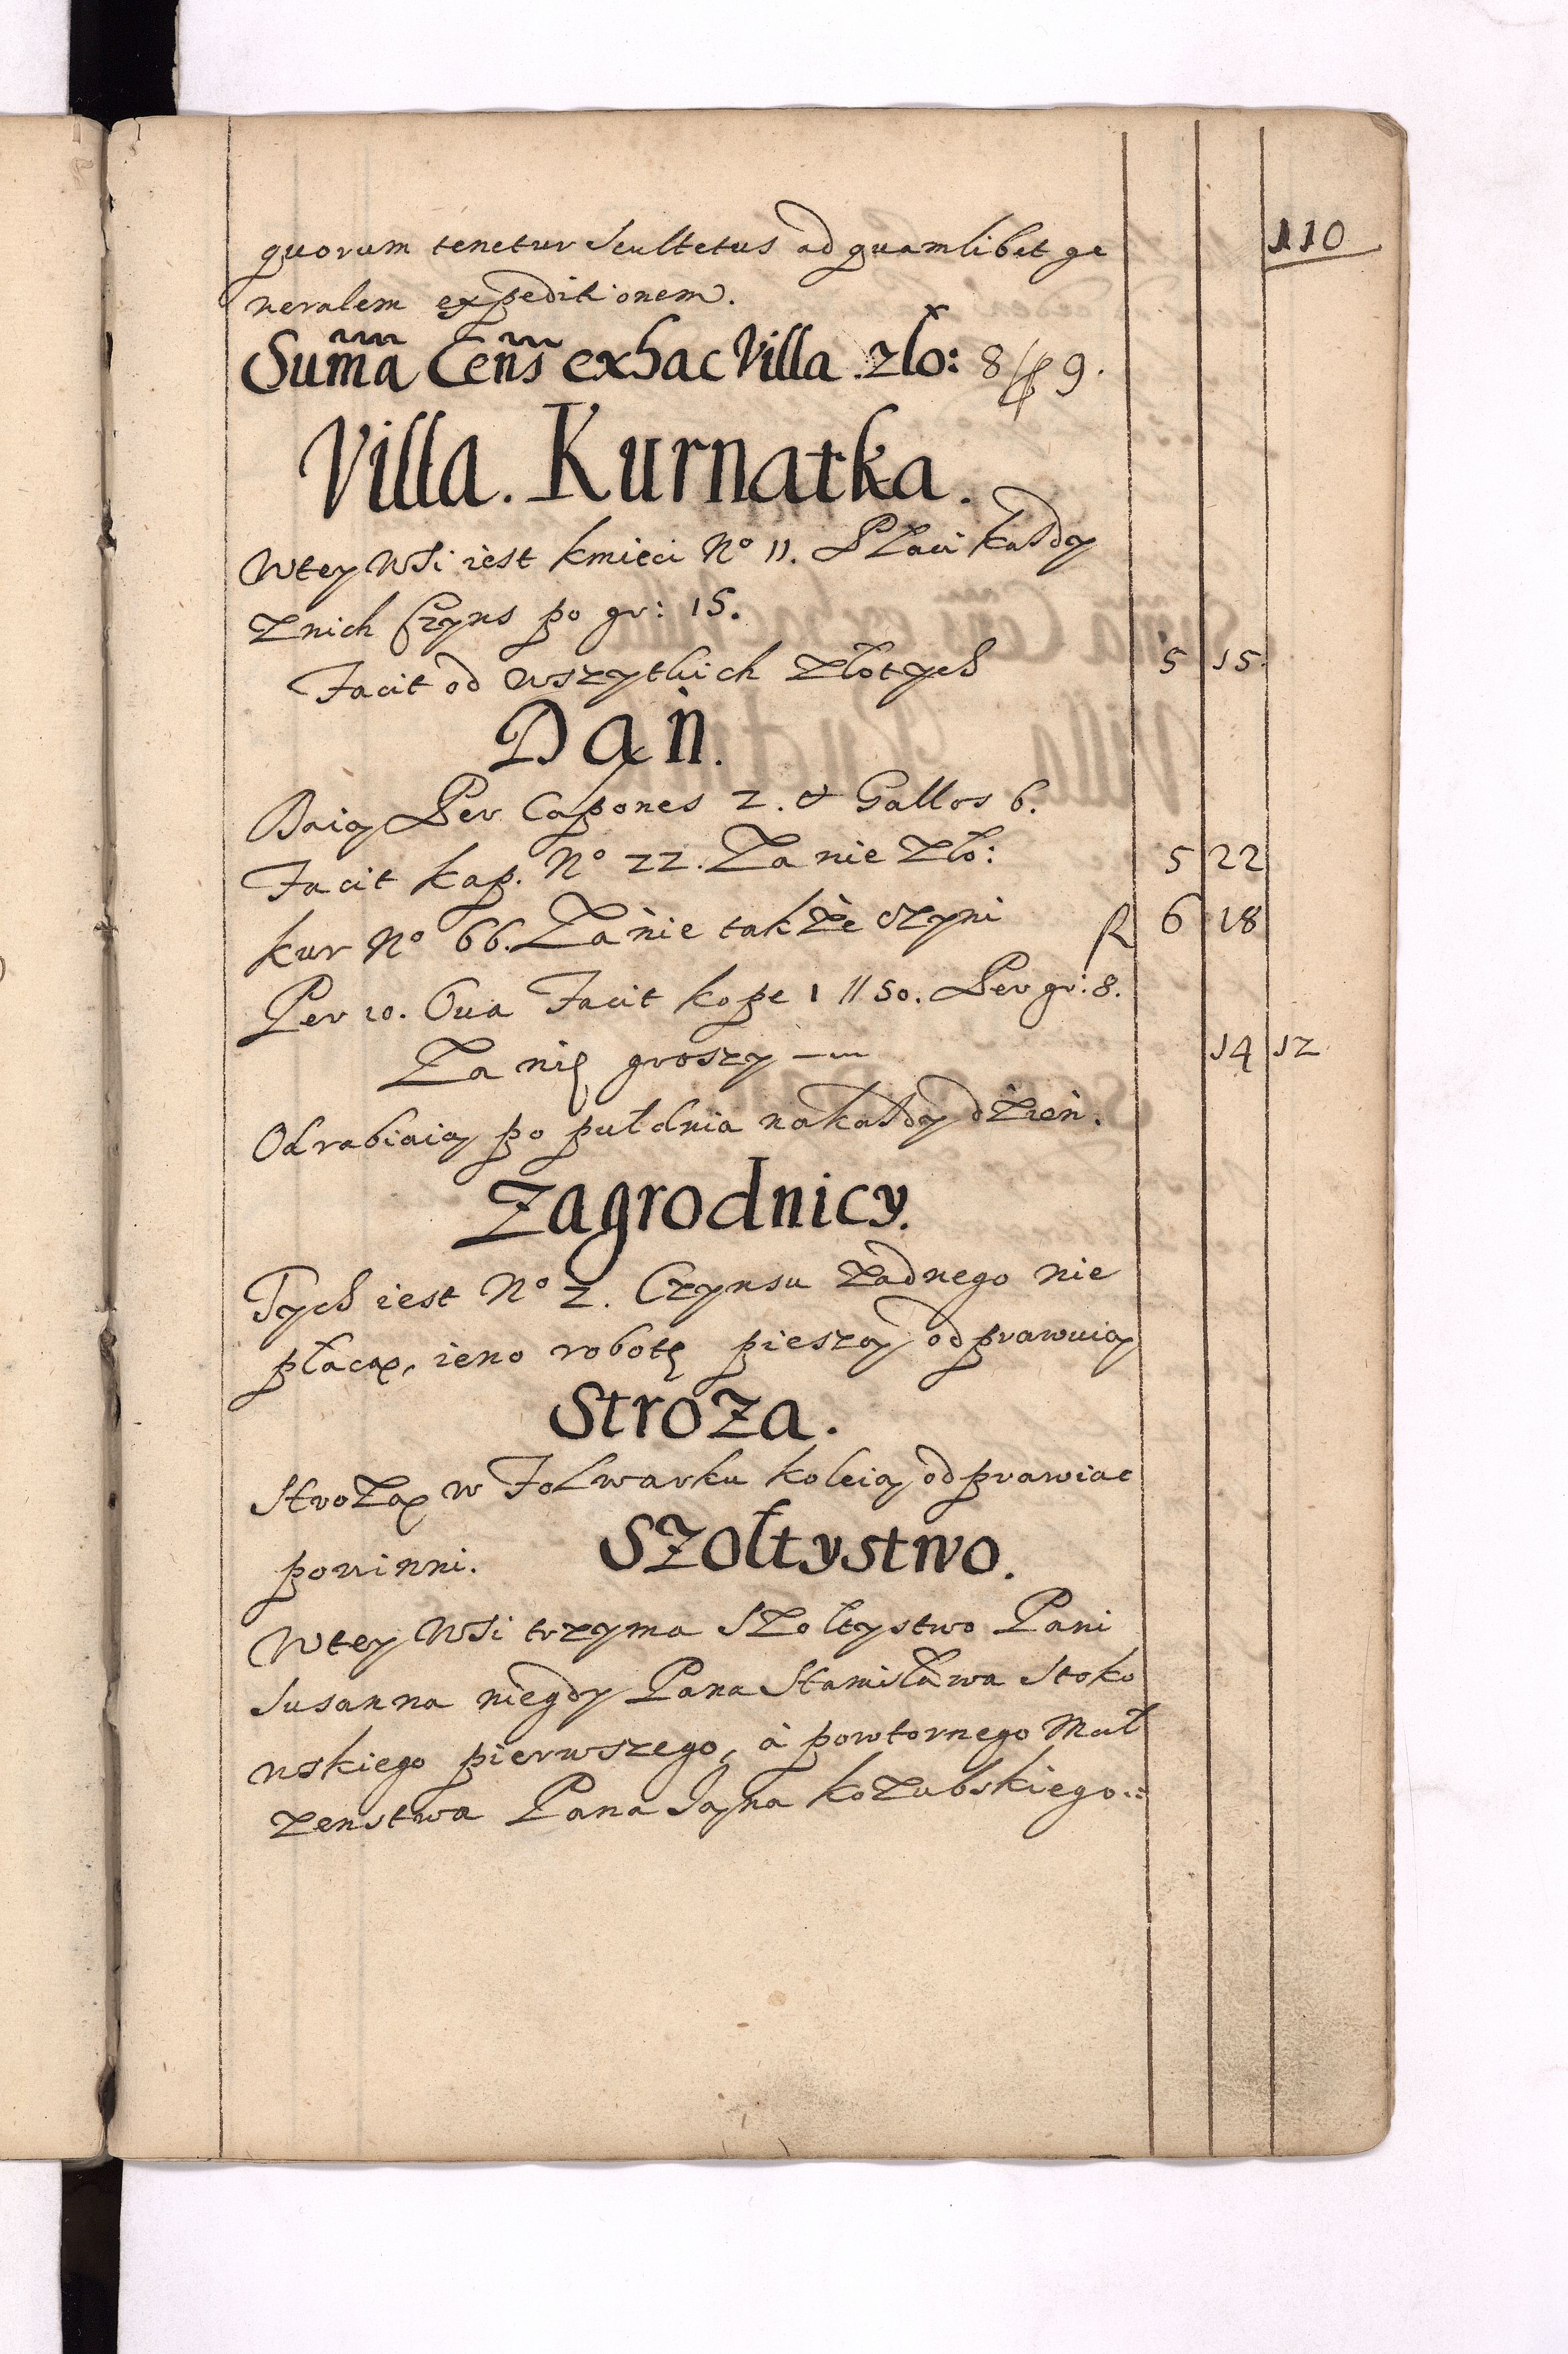 110
quorum tenetur Scultetus ad quamlibet ge
neralem expeditionem.
Sum̃a Cens̃ ex hac Villa zło: 8 // 9.
Villa. Kurnatka.
W tey Wsi iest kmieci Nº 11. Płaci każdy
z nich Czyns po gr: 15.
Facit od wszytkich złotych 5 15.
Dań.
Daią Per Capones 2. et Gallos 6.
Facit kap. Nº 22. Za nie zło: 5 22
kur Nº 66. Za nie także czyni fl 6 18
Per 10. Oua Facit kope 1 // 50. Per gr: 8.
Za nię groszy — 14 12
Odrabiaią po puł dnia na każdy dzień.
Zagrodnicy.
Tych iest Nº 2. Czynsu żadnego nie
płacą, ieno robotę pieszą odprawuią
Stroza.
Strożą w Folwarku koleią odprawiac
powinni.
Szołtystwo.
W tey Wsi trzyma Szołtystwo Pani
Susanna niegdy Pana Stanisława Stoko
wskiego pierwszego, à powtornego Mał
zenstwa Pana Jana Kozubskiego.: